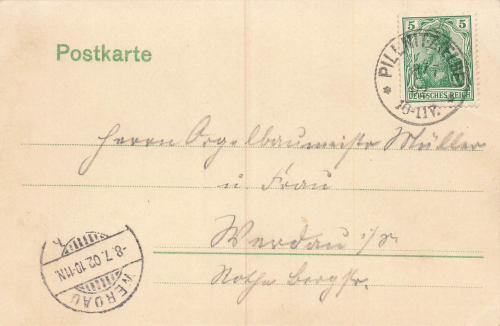 Postkarte
5 5
DEUTSCHES REICH
PILLNITZ (ELBE)
10-11V.
Herrn Orgelbaumeister Müller
u. Frau
Werdau i/S.
Rothe Bergstr.
WERDAU
-8.7.02.10-11N.